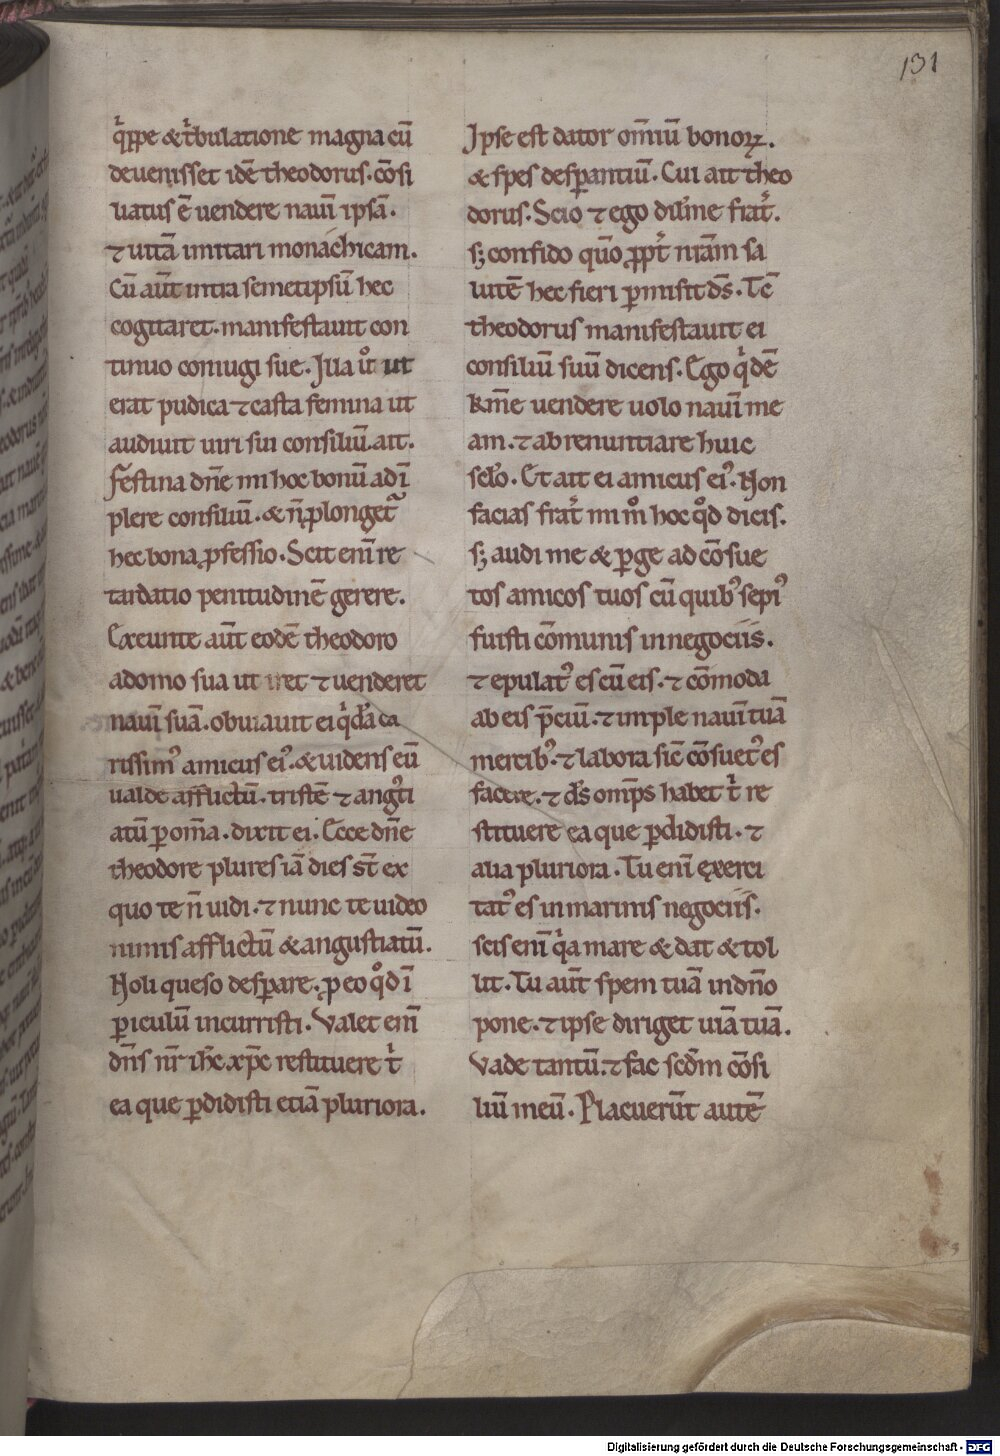 131
q̓ꝑpe ⁊ t̓bulatione magna cū
deuenisset idē theodorus. cōsi
liatus ē uendere nauī ipsā.
⁊ uitā imitari monachicam.
Cū aūt intra semetipsū hec
cogitaret. manifestauit con
tinuo coniugi sue. Illa ů ut
erat pudica ⁊ casta femina ut
audiuit uiri sui consiliū. ait.
Festina dn̄e mi hoc bonū adī
plere consiliū. & n̄ ꝓlonget᷑
hec bona ꝓfessio. Scit enī re
tardatio penitudinē gerere.
Exeunte aūt eodē theodoro
a domo sua ut iret ⁊ uenderet
nauī suā. obuiauit ei q̓dā ca
rissim᷒ amicus ei᷒. & uidens eū
ualde afflictū. tristē ⁊ angusti
atū ꝑ om̄a. dixit ei. Ecce dn̄e
theodore plures iā dies st̄ ex
quo te n̄ uidi. ⁊ nunc te uideo
nimis afflictū & angustiatū.
Noli queso desꝑare. ꝓ eo qd̊ ī
ꝑiculū incurristi. Valet enī
dn̄s nr̄ ih̄c xp̄c restituere t̓
ea que ꝑdidisti etiā pluriora.
Ipse est dator om̄iū bonoꝝ.
& spes desꝑantiū. Cui ait theo
dorus. Scio ⁊ ego dil̄me frat̓.
s; confido qūo ꝓpt̓ nr̄am sa
lutē hec fieri ꝑmisit ds̄. Tc̄
theodorus manifestauit ei
consiliū suū dicens. Ego q̓dē
km̄e uendere uolo nauī me
am. ⁊ abrenuntiare huic
sel̄o. Et ait ei amicus ei᷒. Non
facias frat̓ mi m̊ hoc qd̊ dicis.
s; audi me & ꝑge ad cōsue
tos amicos tuos cū quib᷒ sepi᷒
fuisti cōmunis in negociis.
⁊ epulat᷒ es cū eis. ⁊ cōmoda
ab eis p̄ciū. ⁊ imple nauī tuā
mercib᷒. ⁊ labora sic̄ cōsuet᷒ es
facere. ⁊ ds̄ omp̄s habet t̓ re
stituere ea que ꝑdidisti. ⁊
alia pluriora. Tu enī exerci
tat᷒ es in marinis negociis.
scis enī q̓a mare & dat & tol
lit. Tu aūt spem tuā in dn̄o
pone. ⁊ ipse diriget uiā tuā.
Vade tantū. ⁊ fac scd̄m cōsi
liū meū. Placuerūt autē
Digitalisierung gefördert durch die Deutsche Forschungsgemeinschaft - DFG